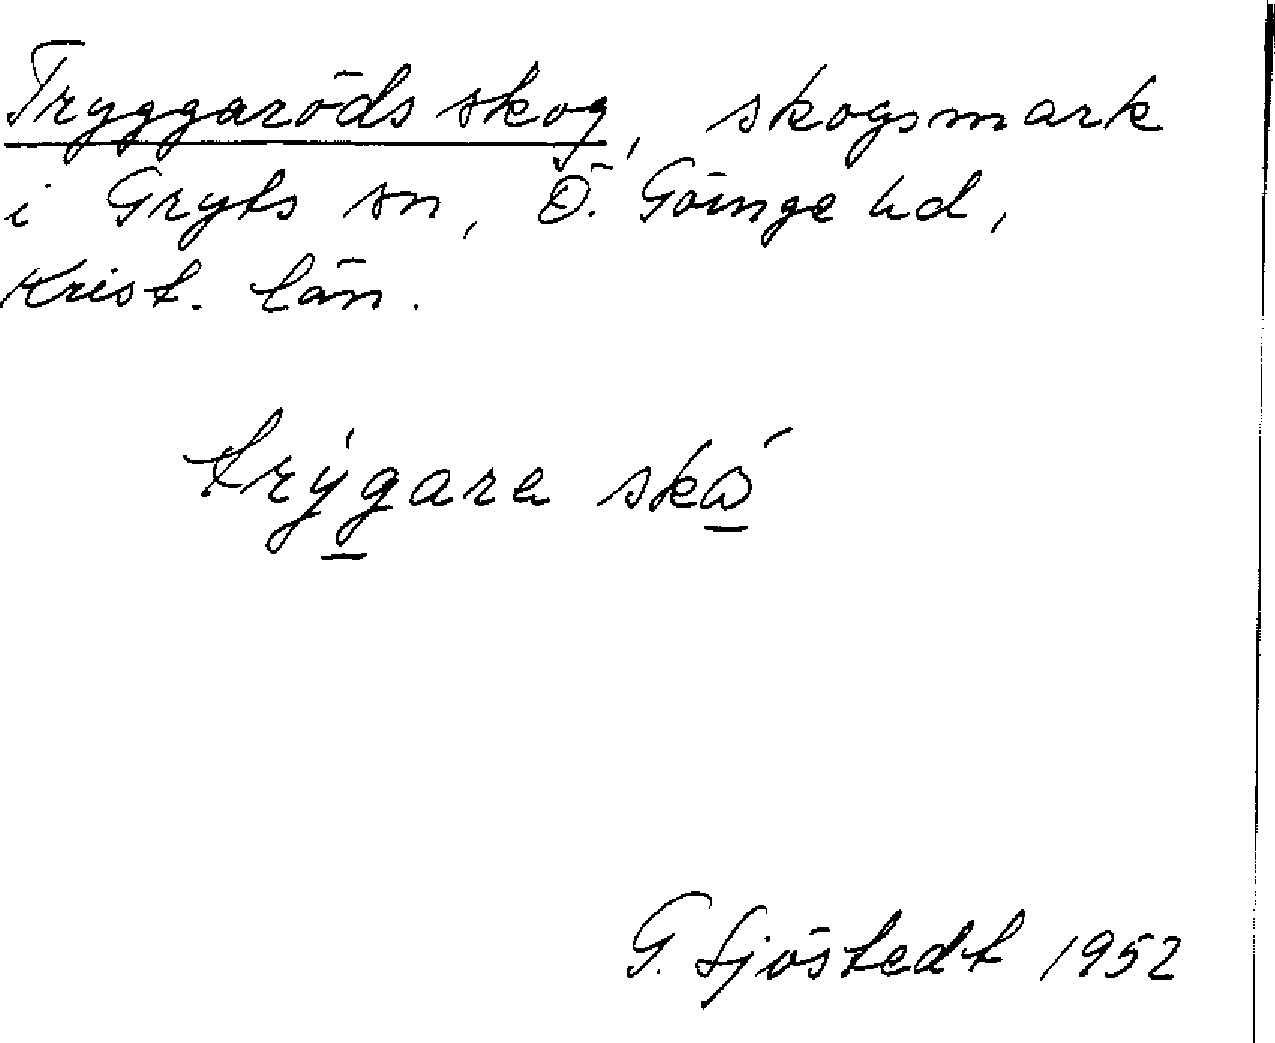 Tryggaröds skog, skogsmark
i Gryts sn, Ö. Göinge hd,
Krist. län.
trýgara ská
G. Sjöstedt 1952